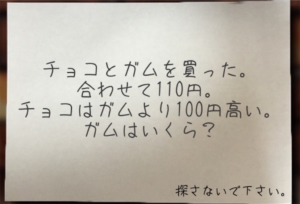 チョコとガムを買った。
合わせて110円。
チョコはガムより100円高い。
ガムはいくら？
探さないで下さい。